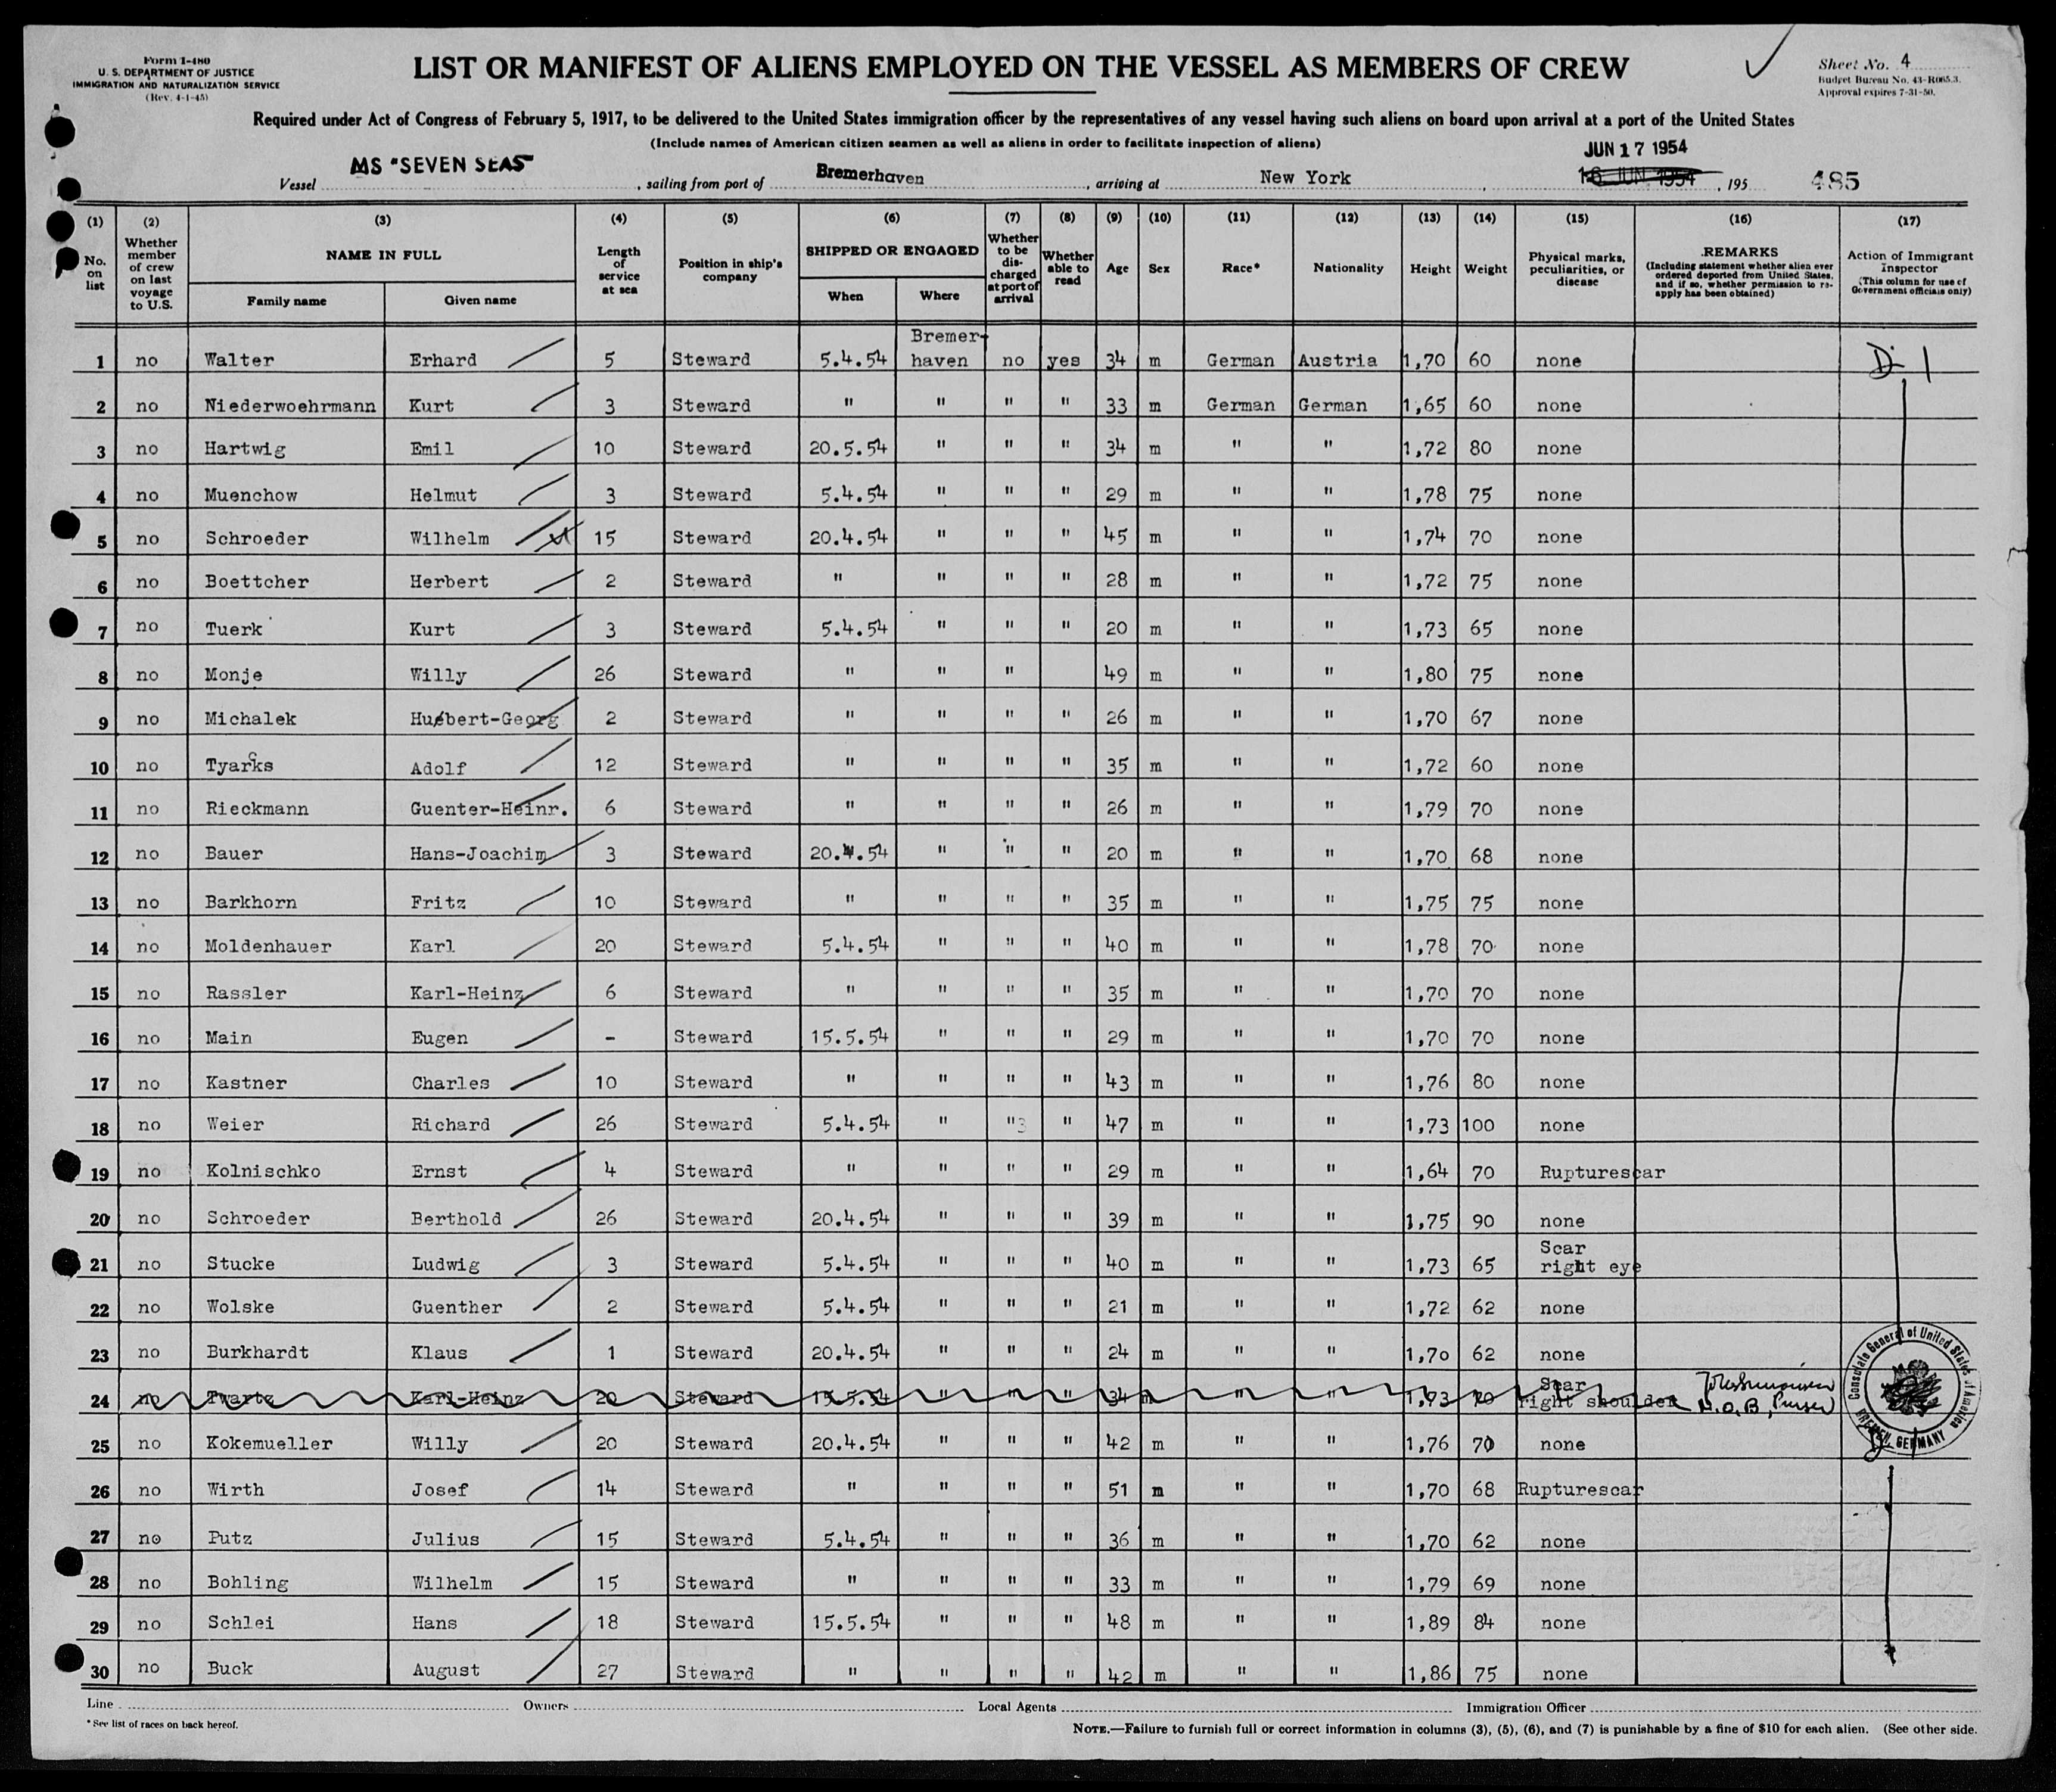 Form I-480
U. S. DEPARTMENT OF JUSTICE
IMMIGRATION AND NATURALIZATION SERVICE
(Rev. 4-1-45)
LIST OR MANIFEST OF ALIENS EMPLOYED ON THE VESSEL AS MEMBERS OF CREW
Sheet No. 4
Budget Bureau No. 43-R065.3.
Approval expires 7-31-50.
Required under Act of Congress of February 5, 1917, to be delivered to the United States immigration officer by the representatives of any vessel having such aliens on board upon arrival at a port of the United States
(Include names of American citizen seamen as well as aliens in order to facilitate inspection of aliens)
JUN 17 1954
Vessel MS "SEVEN SEAS", sailing from port of Bremerhaven, arriving at New York, 16 JUN. 1954, 195 485
(1) (2) (3) (4) (5) (6) (7) (8) (9) (10) (11) (12) (13) (14) (15) (16) (17)
No. on list
Whether member of crew on last voyage to U.S.
NAME IN FULL
Family name Given name
Length of service at sea
Position in ship's company
SHIPPED OR ENGAGED
When Where
Whether to be discharged at port of arrival
Whether able to read
Age
Sex
Race*
Nationality
Height
Weight
Physical marks, peculiarities, or disease
REMARKS
(Including statement whether alien ever ordered deported from United States, and if so, whether permission to re-apply has been obtained)
Action of Immigrant Inspector
(This column for use of Government officials only)
1 no Walter Erhard 5 Steward 5.4.54 Bremer-haven no yes 34 m German Austria 1,70 60 none D-1
2 no Niederwoehrmann Kurt 3 Steward " " " " 33 m German German 1,65 60 none
3 no Hartwig Emil 10 Steward 20.5.54 " " " 34 m " " 1,72 80 none
4 no Muenchow Helmut 3 Steward 5.4.54 " " " 29 m " " 1,78 75 none
5 no Schroeder Wilhelm 15 Steward 20.4.54 " " " 45 m " " 1,74 70 none
6 no Boettcher Herbert 2 Steward " " " " 28 m " " 1,72 75 none
7 no Tuerk Kurt 3 Steward 5.4.54 " " " 20 m " " 1,73 65 none
8 no Monje Willy 26 Steward " " " 49 m " " 1,80 75 none
9 no Michalek Huebert-Georg 2 Steward " " " " 26 m " " 1,70 67 none
10 no Tyarks Adolf 12 Steward " " " " 35 m " " 1,72 60 none
11 no Rieckmann Guenter-Heinr. 6 Steward " " " " 26 m " " 1,79 70 none
12 no Bauer Hans-Joachim 3 Steward 20.4.54 " " " 20 m " " 1,70 68 none
13 no Barkhorn Fritz 10 Steward " " " " 35 m " " 1,75 75 none
14 no Moldenhauer Karl 20 Steward 5.4.54 " " " 40 m " " 1,78 70 none
15 no Rassler Karl-Heinz 6 Steward " " " " 35 m " " 1,70 70 none
16 no Main Eugen - Steward 15.5.54 " " " 29 m " " 1,70 70 none
17 no Kastner Charles 10 Steward " " " " 43 m " " 1,76 80 none
18 no Weier Richard 26 Steward 5.4.54 " "3 " 47 m " " 1,73 100 none
19 no Kolnischko Ernst 4 Steward " " " " 29 m " " 1,64 70 Rupturescar
20 no Schroeder Berthold 26 Steward 20.4.54 " " " 39 m " " 1,75 90 none
21 no Stucke Ludwig 3 Steward 5.4.54 " " " 40 m " " 1,73 65 Scar right eye
22 no Wolske Guenther 2 Steward 5.4.54 " " " 21 m " " 1,72 62 none
23 no Burkhardt Klaus 1 Steward 20.4.54 " " " 24 m " " 1,70 62 none
24 no Twartz Karl-Heinz 20 Steward 15.5.54 " " " 34 m " " 1,73 70 Scar right shoulder N.O.B, Purser
Consulate General of United States of America BREMEN, GERMANY
25 no Kokemueller Willy 20 Steward 20.4.54 " " " 42 m " " 1,76 70 none
26 no Wirth Josef 14 Steward " " " " 51 m " " 1,70 68 Rupturescar
27 no Putz Julius 15 Steward 5.4.54 " " " 36 m " " 1,70 62 none
28 no Bohling Wilhelm 15 Steward " " " " 33 m " " 1,79 69 none
29 no Schlei Hans 18 Steward 15.5.54 " " " 48 m " " 1,89 84 none
30 no Buck August 27 Steward " " " " 42 m " " 1,86 75 none
Line Owners Local Agents Immigration Officer
* See list of races on back hereof.
NOTE.—Failure to furnish full or correct information in columns (3), (5), (6), and (7) is punishable by a fine of $10 for each alien. (See other side.